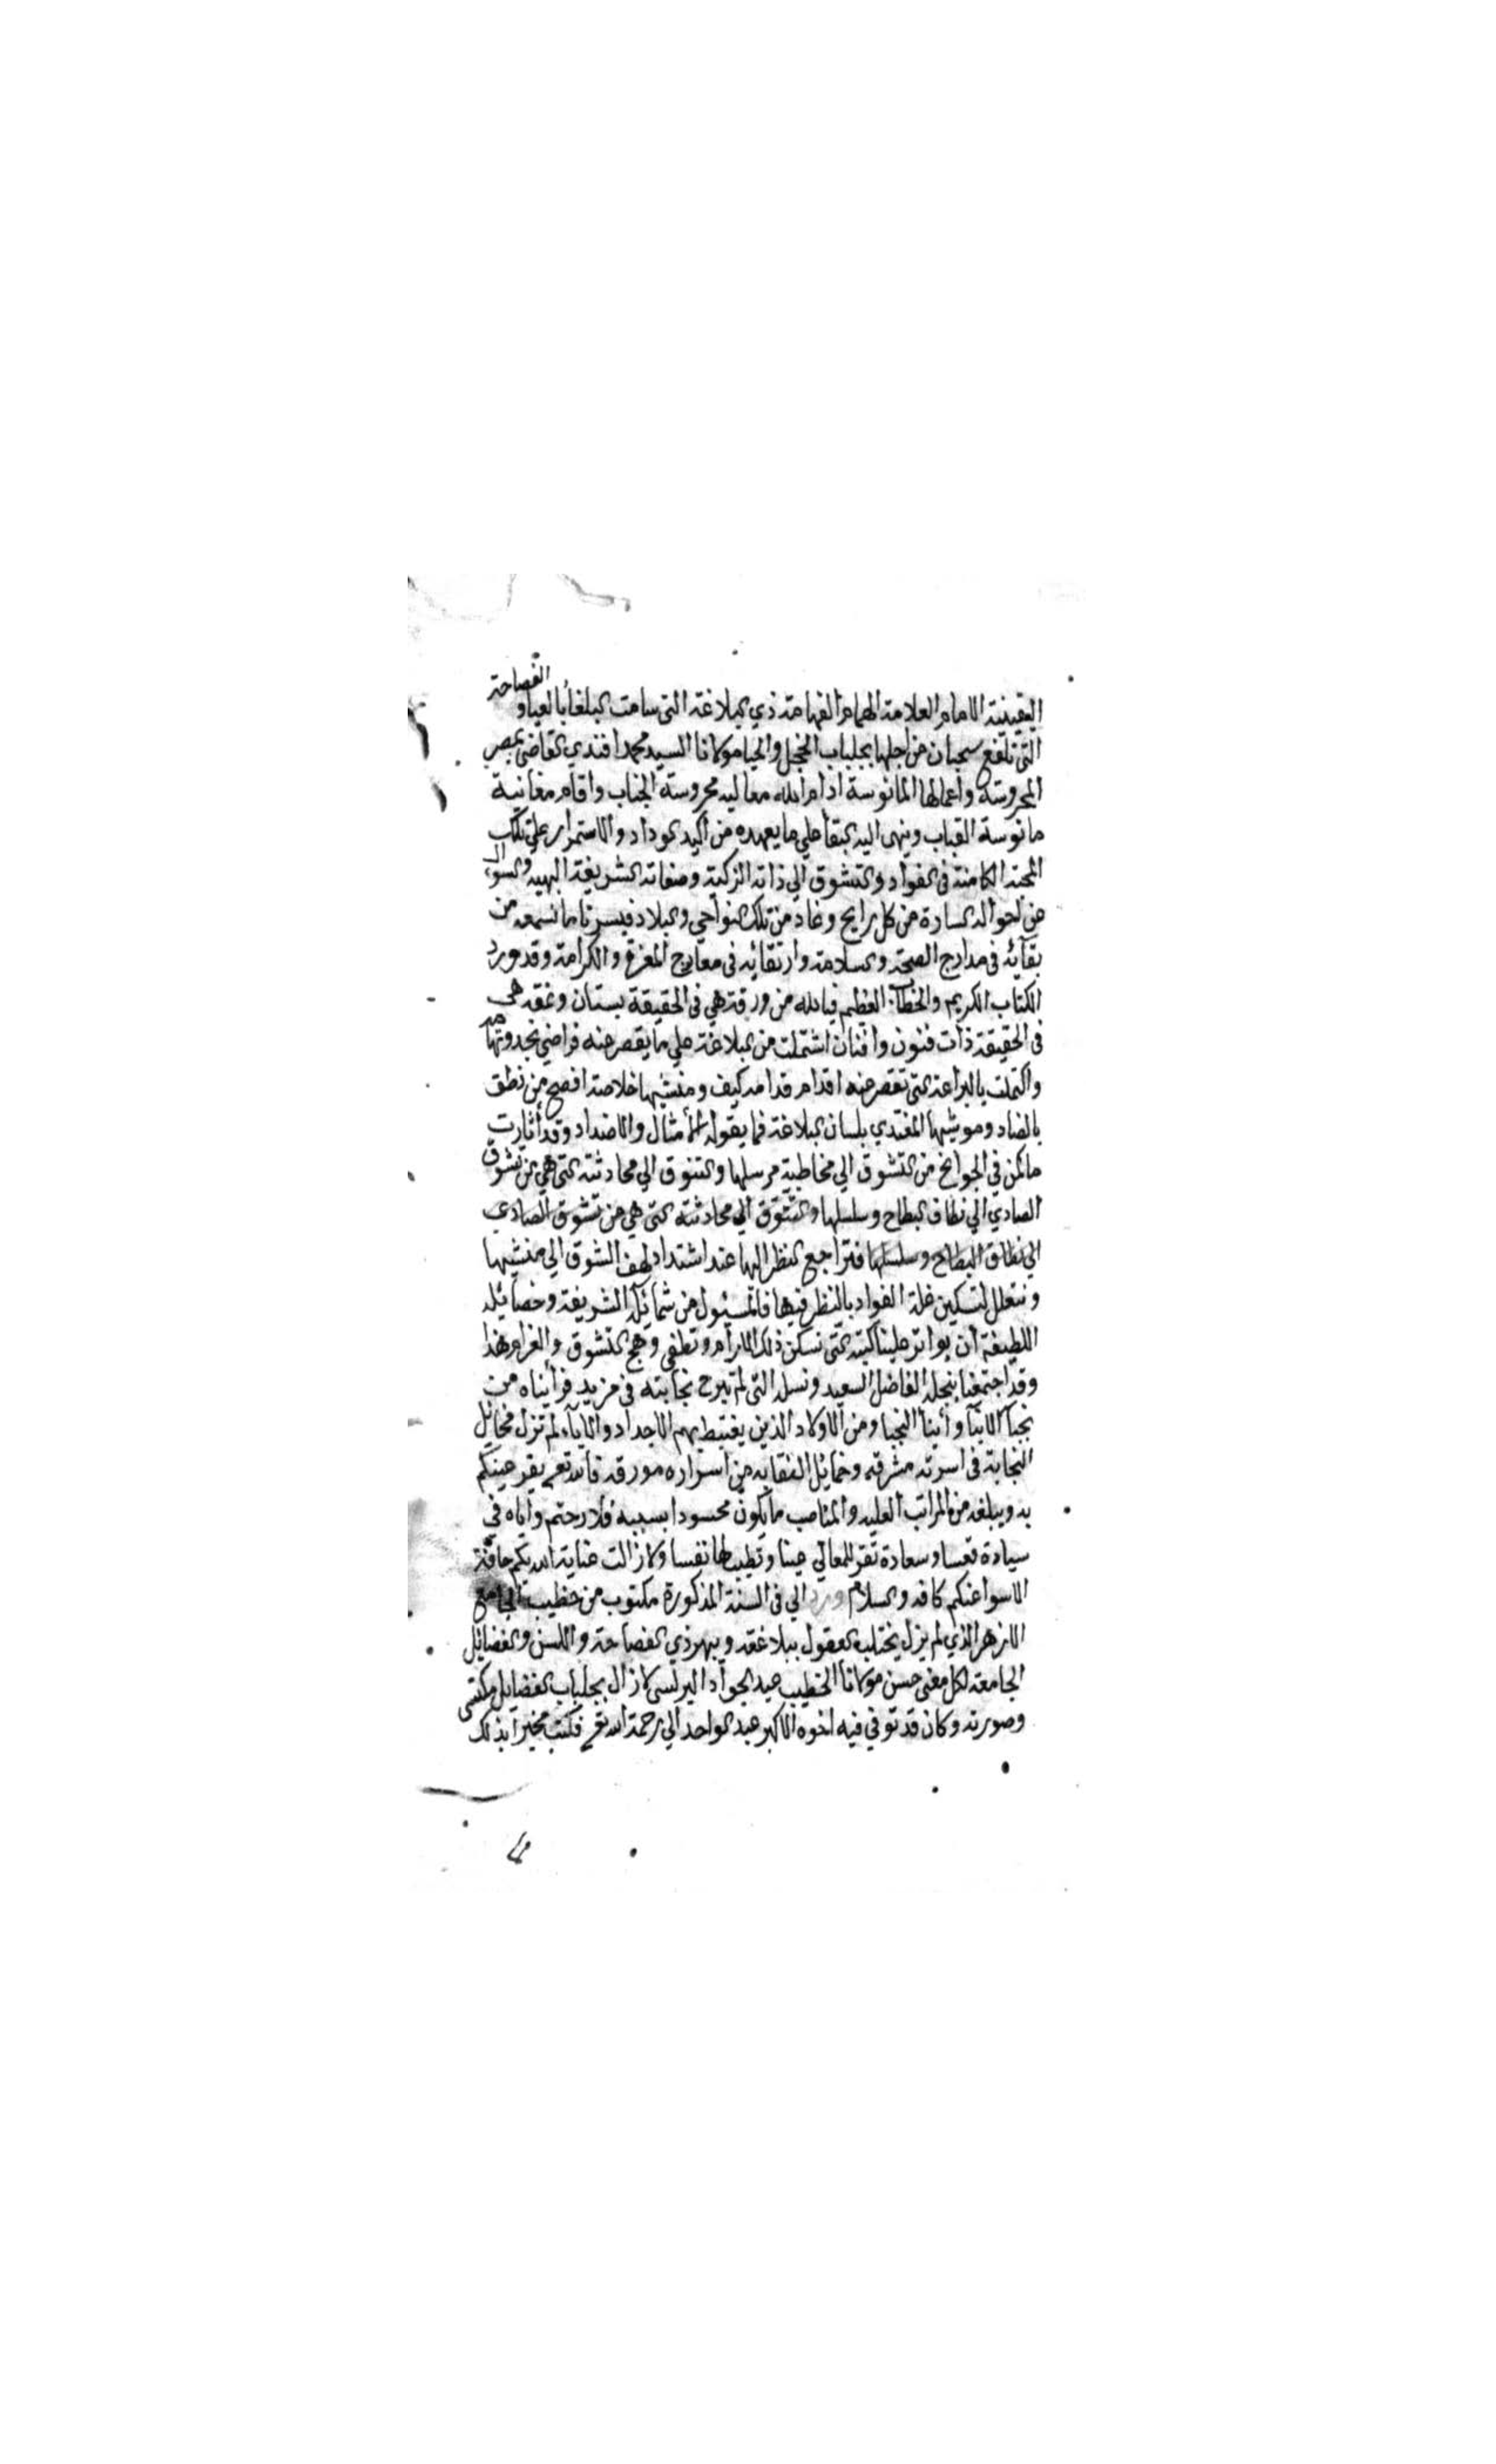 اليقينية الامام العلامة الهمام الفهامة ذي البلاغة التي سامت البلغا بالعيا والفصاحة
التي تلفع سحبان من اجلها بجلباب الخجل والحيا مولانا السيد محمد افندي القاضي بمصر
المحروسة واعمالها المانوسة ادام الله معاليه محروسة الجناب واقام مغانية
مانوسة القباب وينهى اليه البقا علي ما يعهده من اكيد الوداد والاستمرار علي تلك
المحبة الكامنة في الفواد والتشوق الي ذاته الزكية وصفاته الشريفة البهيه والسوال
عن احواله السارة من كل رايح وغاد من تلك النواحي والبلاد فيسرنا ما نسمعه من
بقآئه في مدارج الصحة والسلامة وارتقائه في معارج المعزة والكرامة وقد ورد
الكتاب الكريم والخطاب العظيم فيالله من ورقة هي في الحقيقة بستان وغقه هي
في الحقيقة ذات فنون وافنان اشتملت من البلاغة علي ما يقصر عنه
واكتملت بالبراعة التي تقصر عنه اقدام قدامه كيف ومنشيها خلاصة افصح من نطق
بالضاد وموشيها المغتدي بلسان البلاغة فما يقوله الامثال والاضداد وقد أثارت
ما كمن في الجوانح من التشوق الي مخاطبة مرسلها والتنوق الي محادثته التي هي من تشوق
الصادي الي نطاف البطاح وسلسلها والتشوق الي محادثته التي هي من تشوق الصادي
الي نطاق البطاح وسلسلها فنراجع النظر اليها عند اشتداد لهف الشوق الي منشيها
ونتعلل لتسكين غلة الفواد بالنظر فيها فالمسئول من شمآئله الشريفة وخصآئله
اللطيفة أن يواتر علينا كتبه التي تسكن ذلك الاوام وتطفي وهج التشوق والغرام هذا
وقد اجتمعنا بنجله الفاضل السعيد ونسله التي لم تبرح نجابته في مزيد فرأيناه من
نجبآ الابنآ وأبنآ النجبا ومن الاولاد الذين يغتبط بهم الاجداد والابآء لم تزل مخايل
النجابة في اسرته مشرقه وخمائل النقابه من اسراره مورقه فالله تعـ يقر عينكم
به ويبلغه من المراتب العليه والمناصب ما يكون محسودا بسببه فلا رحتم واياه في
سيادة قعسا وسعادة تقر للمعالي عينا وتطيب لها نفسا ولا زالت عناية الله بكم حافة
الاسوا عنكم كافه والسلام ورد الي في السنة المذكورة مكتوب من خطيب الجامع
الازهر الذي لم يزل يختلب العقول ببلاغته ويبهر ذي الفصاحة واللسن والفضائل
الجامعة لكل معنى حسن مولانا الخطيب عبد الجواد البرلسي لا زال بجلباب الفضايل مكتسي
وصورته وكان قد توفي فيه اخوه الاكبر عبد الواحد الي رحمة الله تعـ فكتب مخبرا بذلك